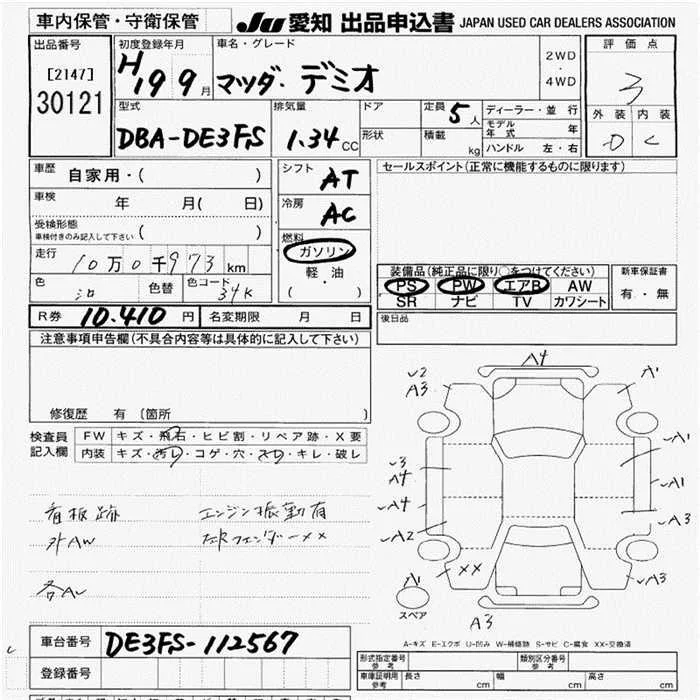 車内保管・守衛保管 JU 愛知 出品申込書 JAPAN USED CAR DEALERS ASSOCIATION
出品番号 初度登録年月 車名・グレード 評価点
[2147] H19 9月 マツダ・デミオ 2WD・4WD 3
30121
型式 排気量 ドア 定員 5人 ディーラー・並行 外装 内装
DBA-DE3FS 1.34cc 形状 積載 kg モデル年式 年 D C
ハンドル 左・右
車歴 自家用・( ) シフト AT セールスポイント(正常に機能するものに限ります)
車検 年 月( 日) 冷房 AC
受検形態
車検付きのみ記入して下さい ( ) 燃料
走行 10万0千973km ガソリン
軽・油
( )
装備品(純正品に限り○をつけてください) 新車保証書
色 色替 色コード 34K PS PW エアB AW 有・無
SR ナビ TV カワシート
R券 10.410円 名変期限 月 日 後日品
注意事項申告欄(不具合内容等は具体的に記入して下さい)
修復歴 有 (箇所 )
検査員 FW キズ・飛石・ヒビ割・リペア跡・X要
記入欄 内装 キズ・汚レ・コゲ・穴・スレ・キレ・破レ
A4
✓2
A3
A'
✓3
A4
✓A1
✓A4
✓A1
✓A2
✓A3
A'
××
✓A3
スペア
A3
看板跡 エンジン振動有
外AW 左Rフェンダー××
各A✓
A-キズ E-エクボ U-凹み W-補修跡 S-サビ C-腐食 XX-交換済
車台番号 DE3FS-112567
登録番号
形式指定番号 参考 類別区分番号 参考
車庫証明用 参考 長さ cm 幅 cm 高さ cm